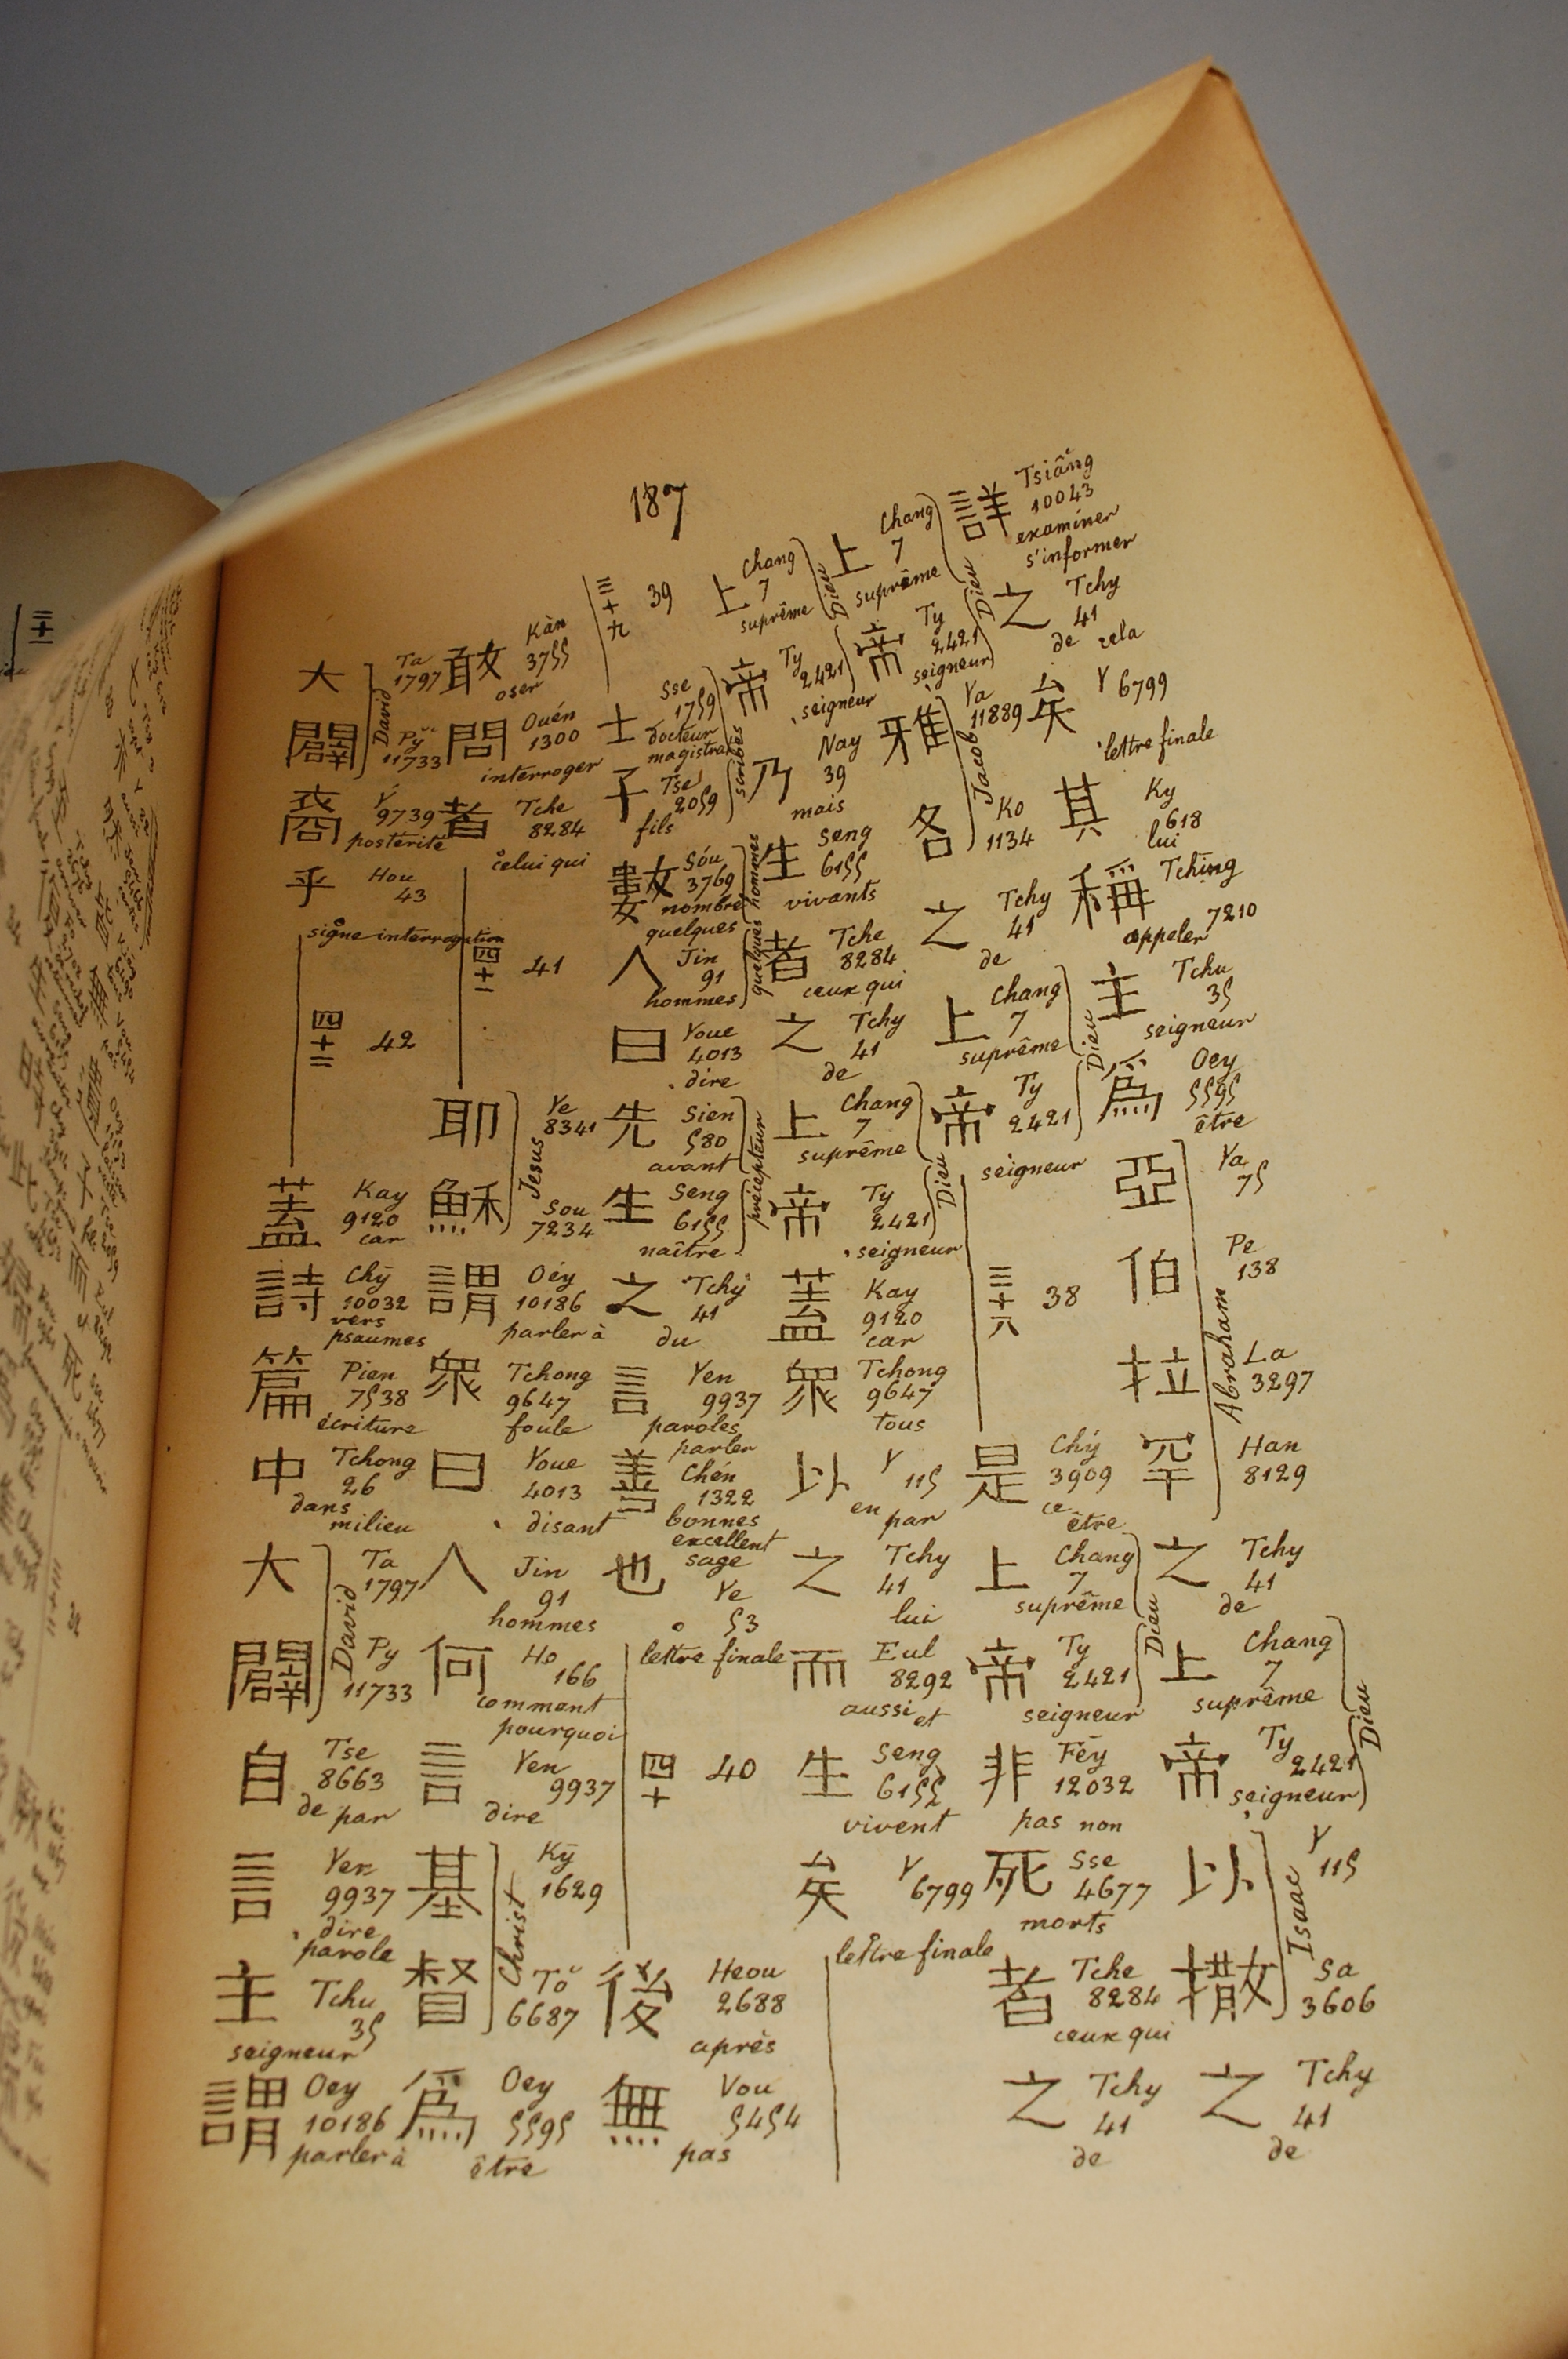 187
詳 Tsiâng 10043 examiner s'informer
之 Tchy 41 de cela
矣 Y 6799 lettre finale
其 Ky 618 lui
稱 Tching 7210 appeler
主 Tchu 35 seigneur
爲 Oey 5595 être
亞 Ya 75
伯 Pe 138
拉 La 3297
罕 Han 8129
Abraham
之 Tchy 41 de
上 Chang 7 suprême
帝 Ty 2421 seigneur
Dieu
以 Y 115
撒 Sa 3606
Isaac
之 Tchy 41 de
上 Chang 7 suprême
帝 Ty 2421 seigneur
Dieu
雅 Ya 11889
各 Ko 1134
Jacob
之 Tchy 41 de
上 Chang 7 suprême
帝 Ty 2421 seigneur
Dieu
三十六 38
是 Chý 3909 ce être
上 Chang 7 suprême
帝 Ty 2421 seigneur
Dieu
非 Fēy 12032 pas non
死 Sse 4677 morts
者 Tche 8284 ceux qui
之 Tchy 41 de
上 Chang 7 suprême
帝 Ty 2421 seigneur
Dieu
乃 Nay 39 mais
生 Seng 6155 vivants
者 Tche 8284 ceux qui
之 Tchy 41 de
上 Chang 7 suprême
帝 Ty 2421 seigneur
Dieu
蓋 Kay 9120 car
衆 Tchong 9647 tous
以 Y 115 en par
之 Tchy 41 lui
而 Eul 8292 aussi et
生 Seng 6155 vivent
矣 Y 6799 lettre finale
三十九 39
士 Sse 1759 docteur magistrat
子 Tse 2059 fils
scribes
數 Sóu 3769 nombre quelques
人 Jin 91 hommes
quelques hommes
曰 Youe 4013 dire
先 Sien 580 avant
生 Seng 6155 naître
précepteur
之 Tchy 41 du
言 Yen 9937 paroles parler
善 Chén 1322 bonnes excellent sage
也 Ye 53 lettre finale
四十 40
後 Heou 2688 après
無 Vou 5454 pas
敢 Kàn 3755 oser
問 Ouén 1300 interroger
者 Tche 8284 celui qui
四十一 41
耶 Ye 8341
穌 Sou 7234
Jesus
謂 Oéy 10186 parler à
衆 Tchong 9647 foule
曰 Youe 4013 disant
人 Jin 91 hommes
何 Ho 166 comment pourquoi
言 Yen 9937 dire
基 Kȳ 1629
督 Tŏ 6687
Christ
爲 Oey 5595 être
大 Ta 1797
闢 Py 11733
David
裔 Y 9739 posterité
乎 Hou 43 signe interrogation
四十二 42
蓋 Kay 9120 car
詩 Chȳ 10032 vers psaumes
篇 Pien 7538 écriture
中 Tchong 26 dans milieu
大 Ta 1797
闢 Py 11733
David
自 Tse 8663 de par
言 Yen 9937 dire parole
主 Tchu 35 seigneur
謂 Oey 10186 parler à